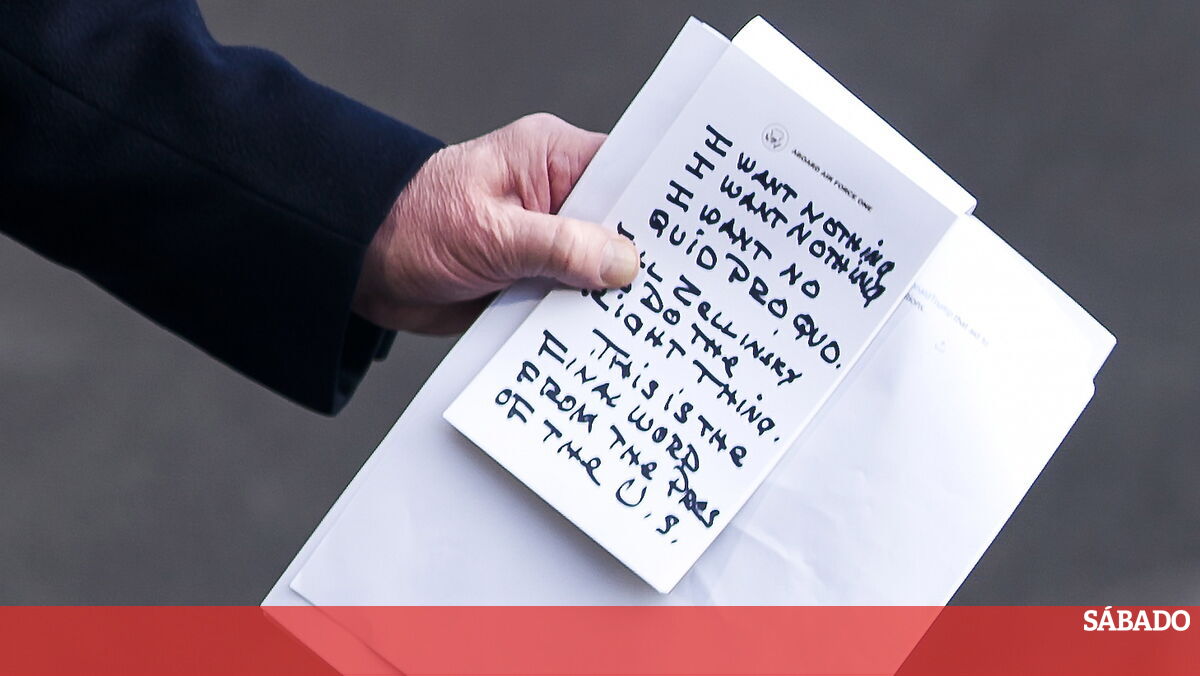 ABOARD AIR FORCE ONE
I WANT NOTHING
I WANT NOTHING
I WANT NO
QUID PRO QUO.
TELL ZELLINSKY
TO DO THE
RIGHT THING.
THIS IS THE
FINAL WORD
FROM THE PRES
OF THE U.S.
SÁBADO